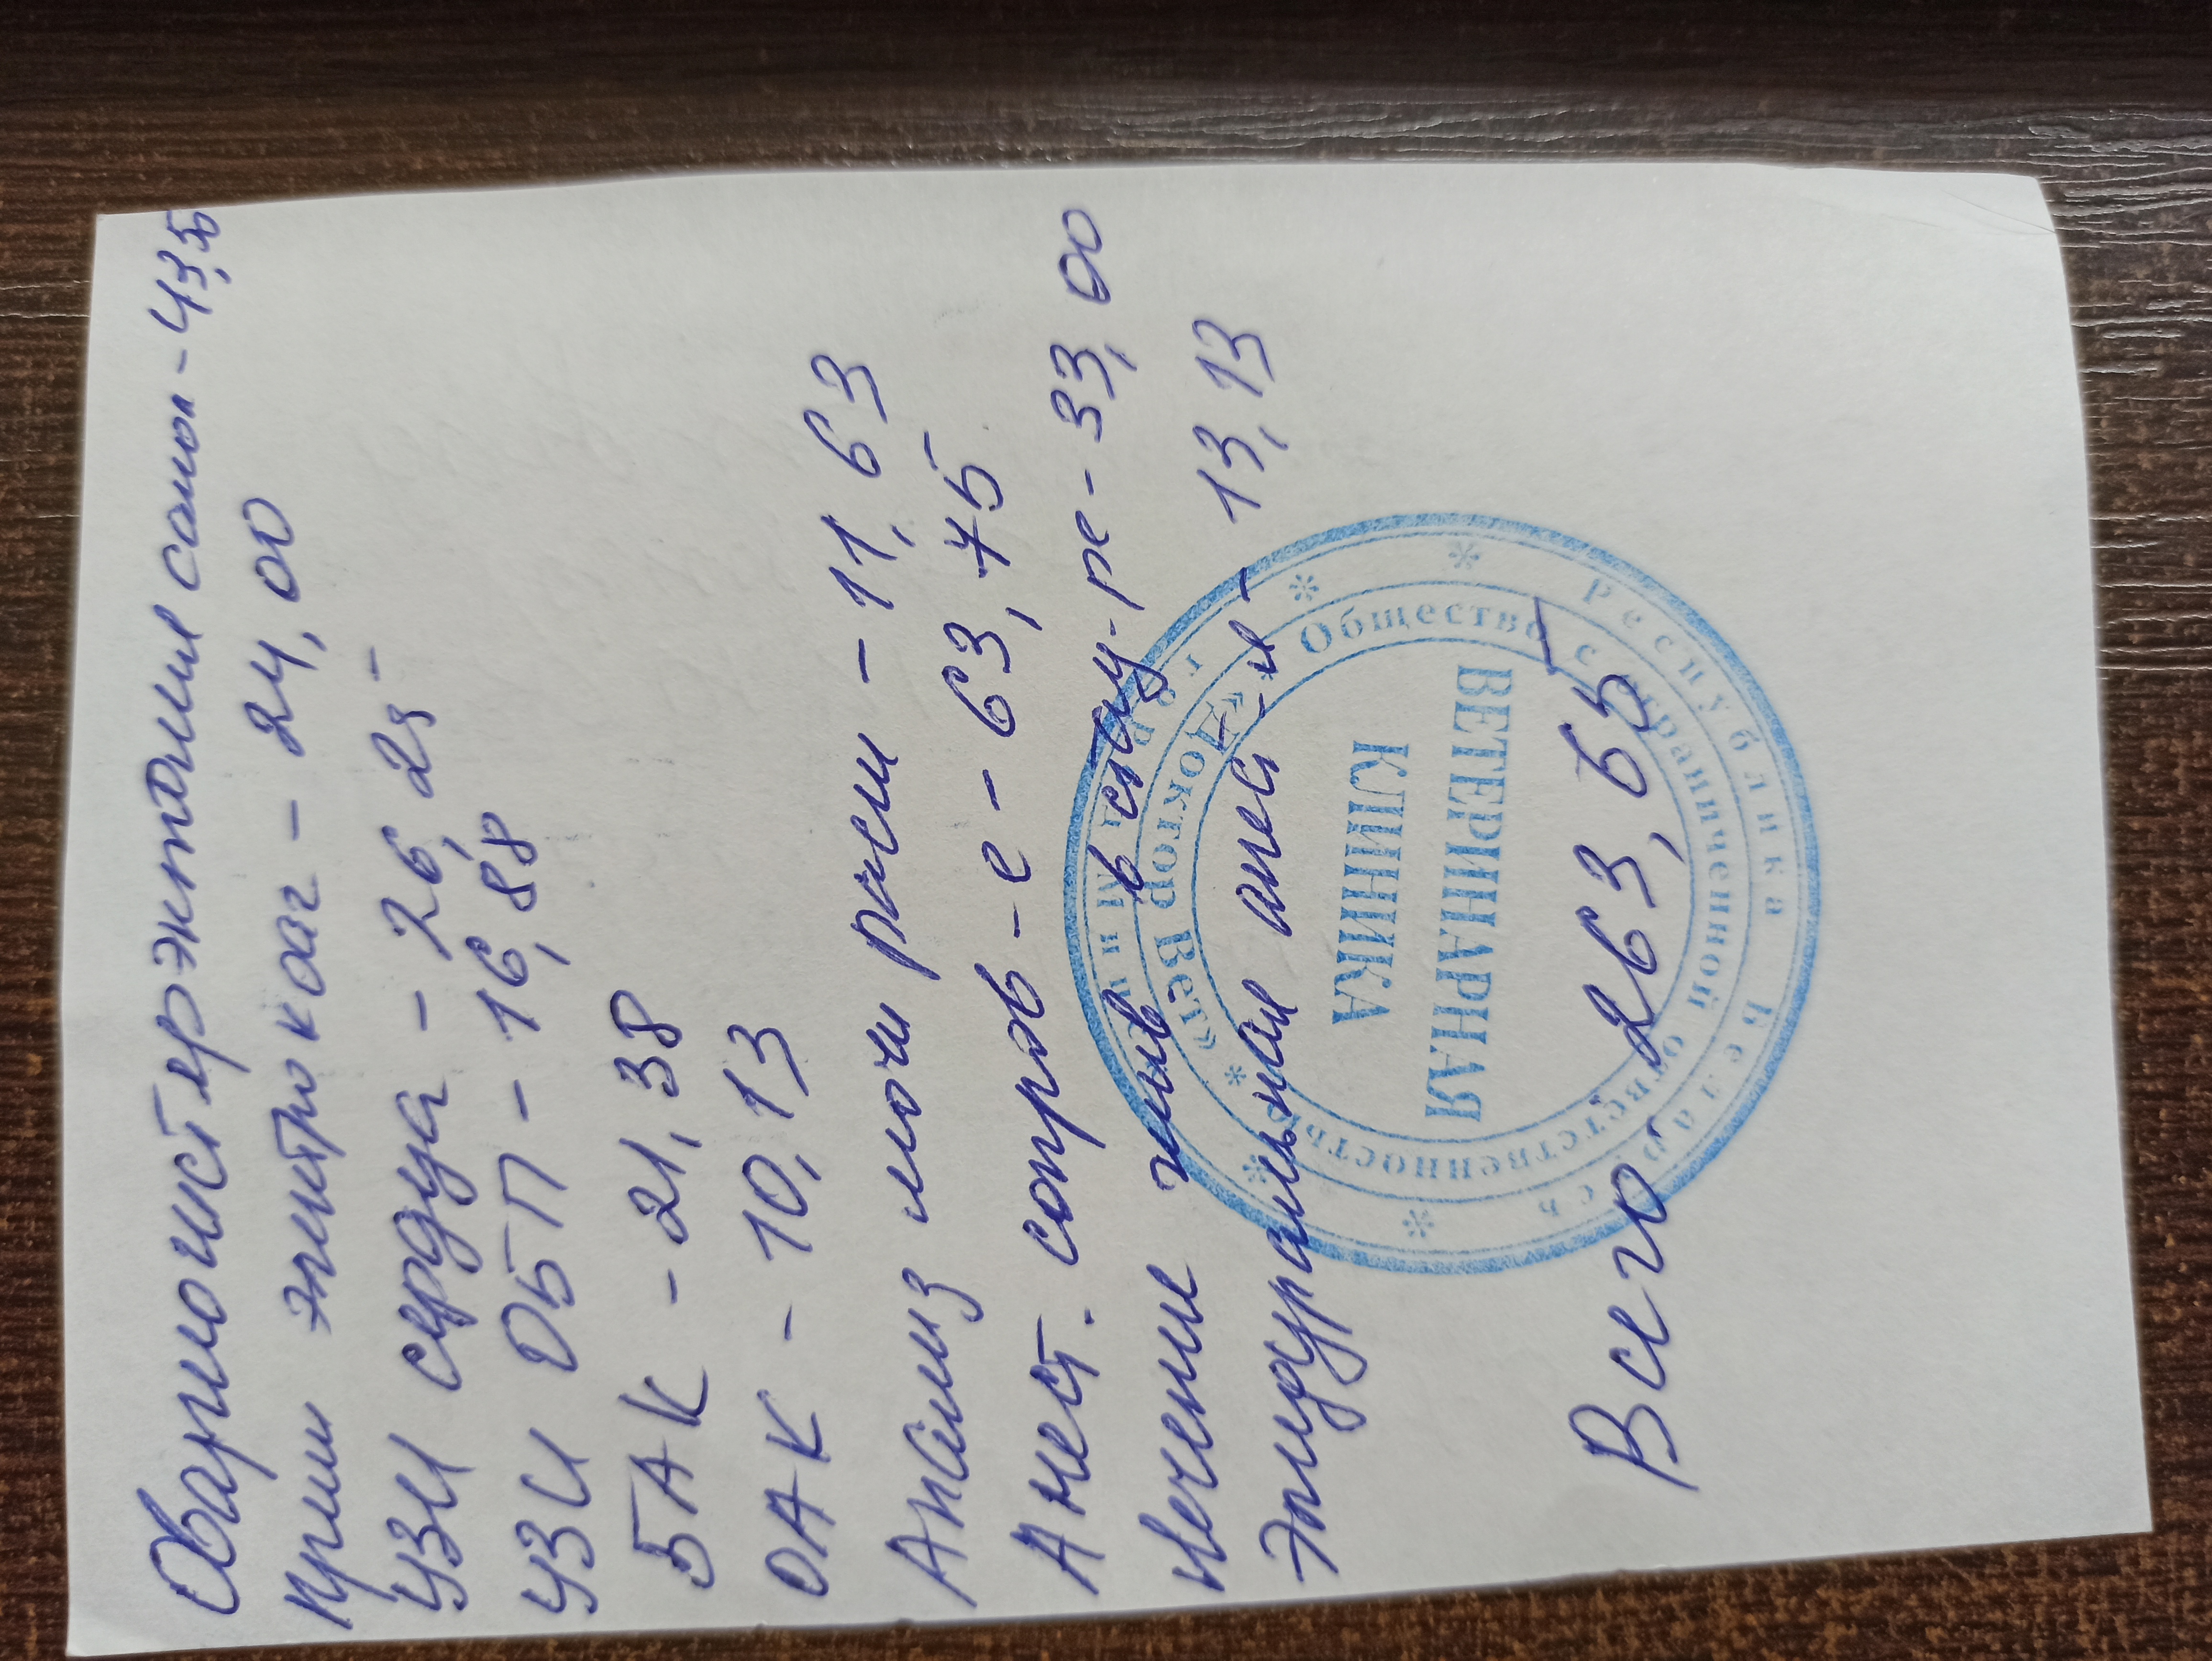 Овариогистерэктомия соли - 43,5
Прием элитр каг - 24,00
УЗИ сердца - 26,25
УЗИ ОБП - 16,88
БАК - 21,38
ОАК - 10,13
Анализ мочи расш - 11,63
Анест. сопров-е - 63,75
Лечение жив в стац-ре - 33,00
Эпидуральная анест-я - 13,13
Всего: 263,65
Республика Беларусь
г. Минск
Общество с ограниченной ответственностью
«Доктор Вет»
ВЕТЕРИНАРНАЯ
КЛИНИКА